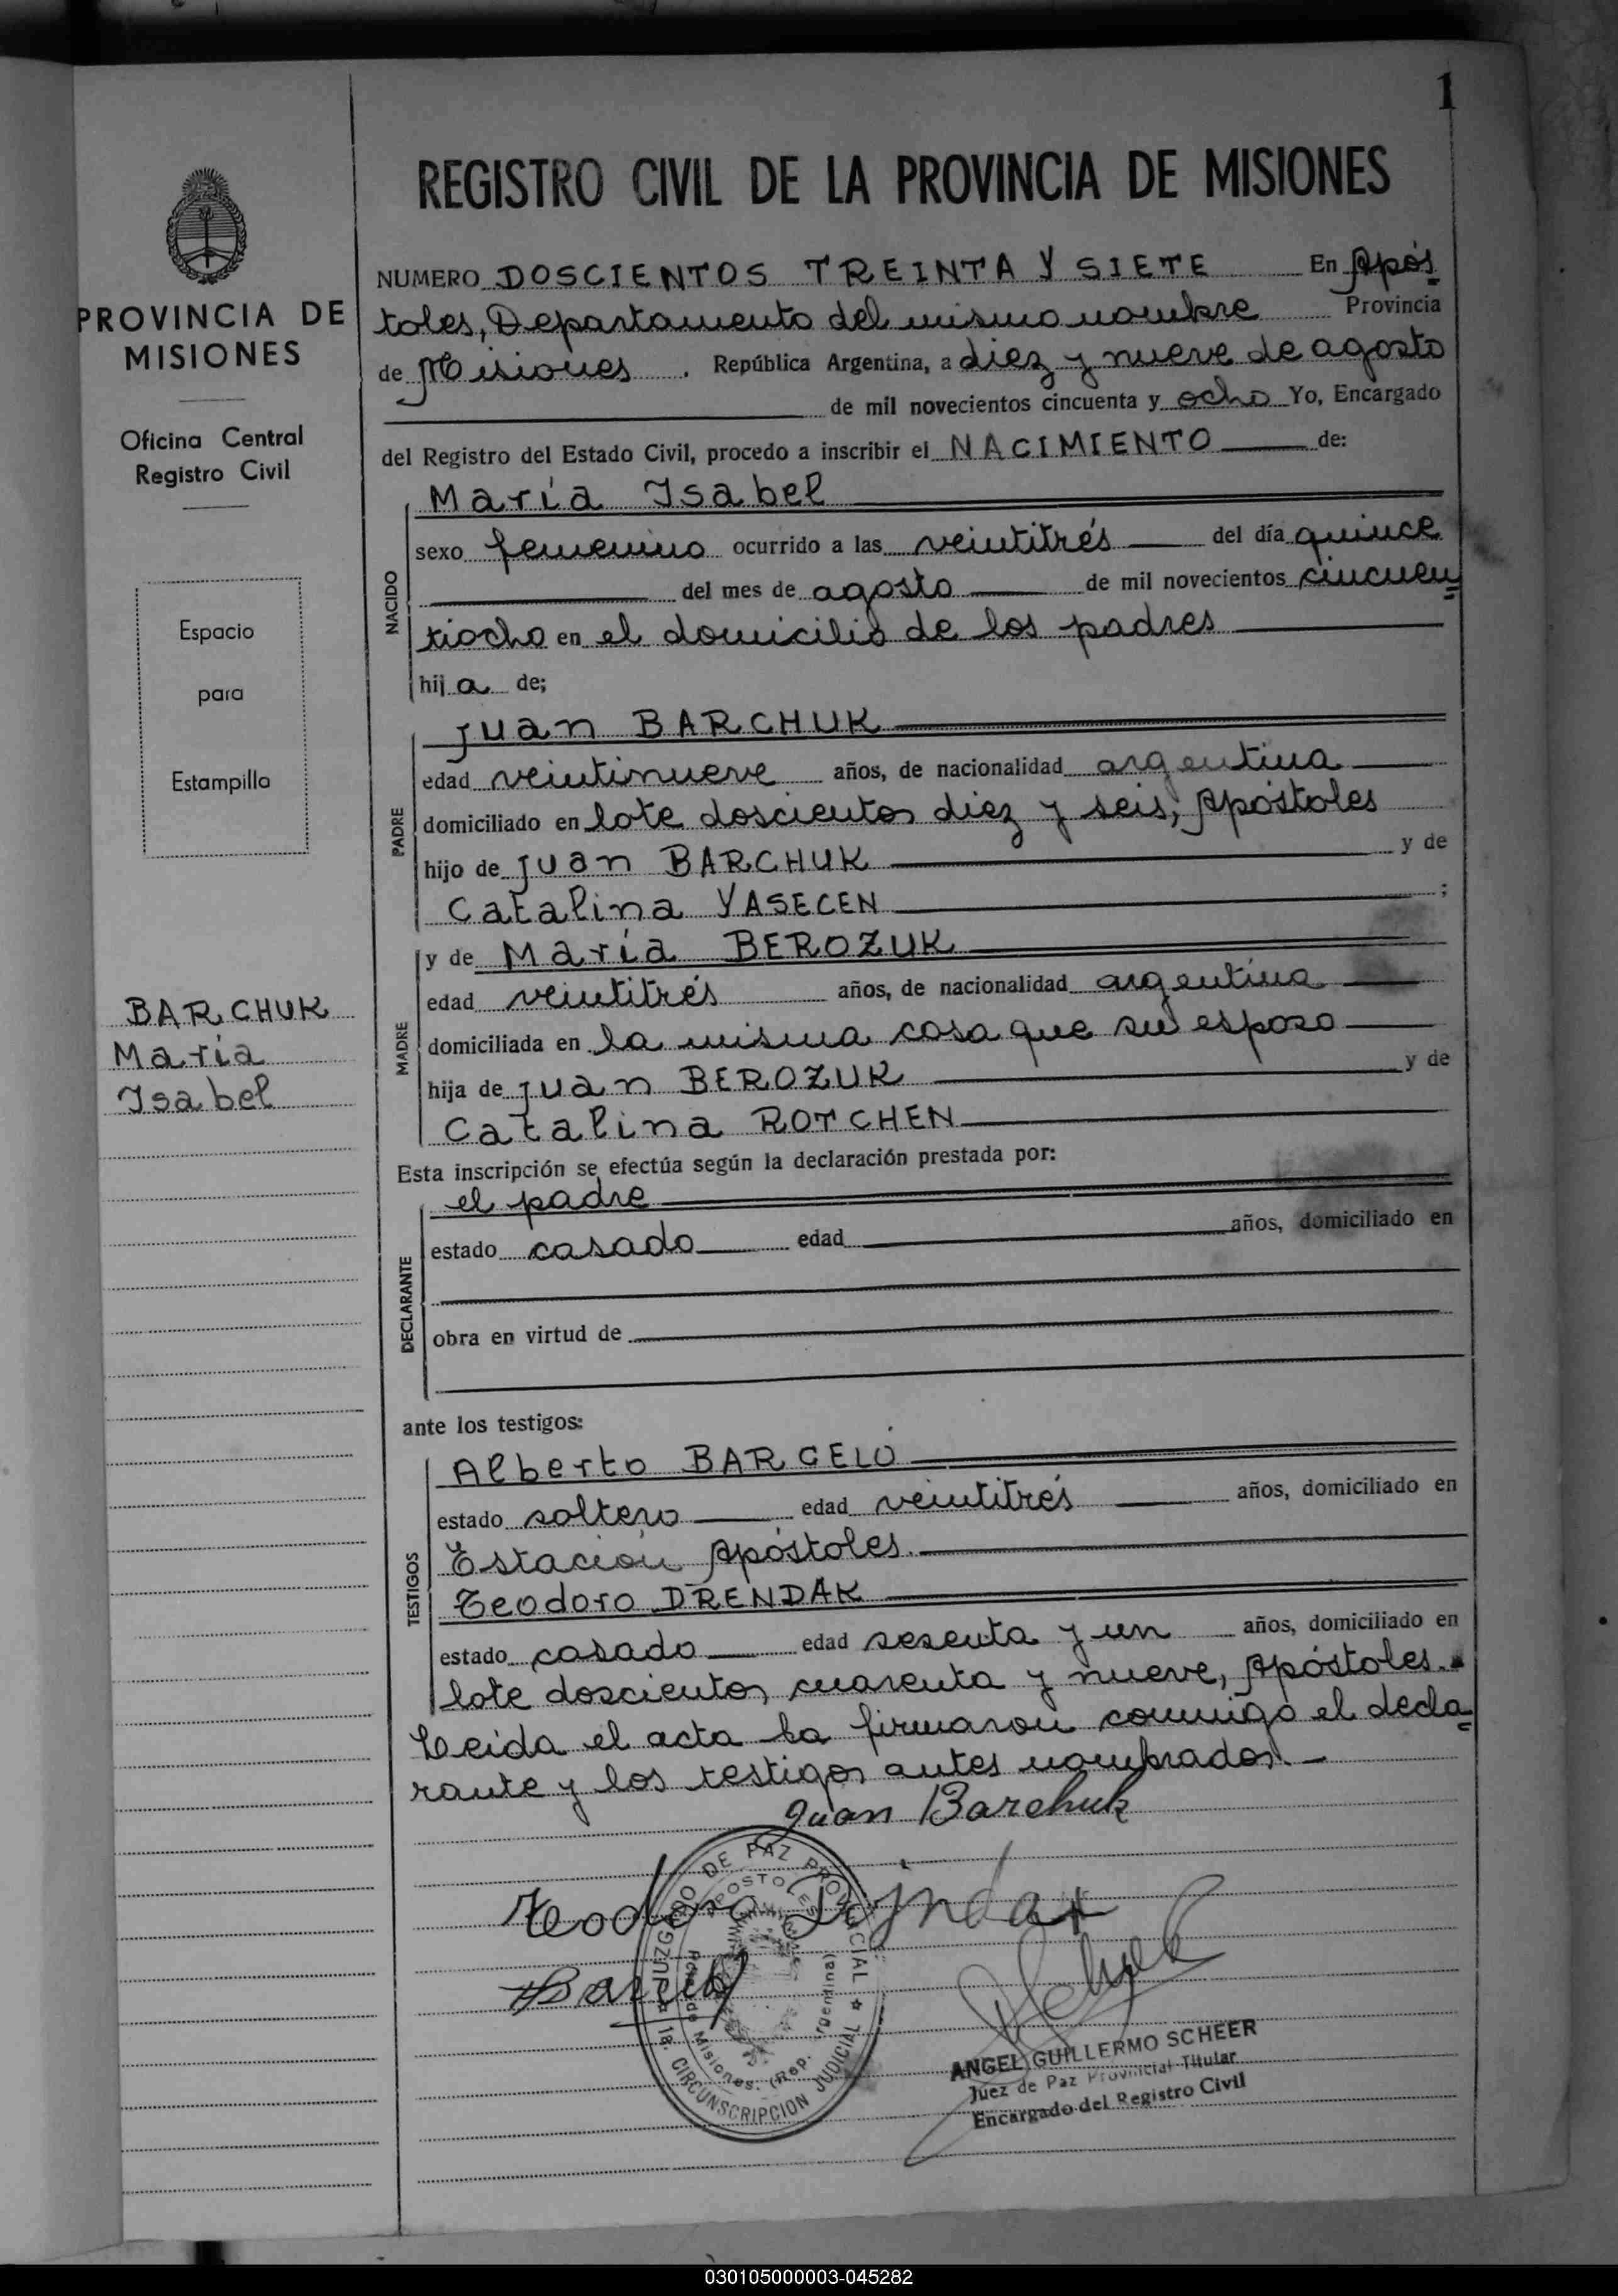 1
REGISTRO CIVIL DE LA PROVINCIA DE MISIONES
PROVINCIA DE
MISIONES
Oficina Central
Registro Civil
Espacio
para
Estampilla
BARCHUK
María
Isabel
NUMERO DOSCIENTOS TREINTA Y SIETE En Após
toles, Departamento del mismo nombre Provincia
de Misiones. República Argentina, a diez y nueve de agosto
de mil novecientos cincuenta y ocho Yo, Encargado
del Registro del Estado Civil, procedo a inscribir el NACIMIENTO de:
NACIDO
María Isabel
sexo femenino ocurrido a las veintitrés del día quince
del mes de agosto de mil novecientos cincuen
tiocho en el domicilio de los padres
hij a de;
PADRE
Juan BARCHUK
edad veintinueve años, de nacionalidad argentina
domiciliado en lote doscientos diez y seis, Apóstoles
hijo de Juan BARCHUK y de
Catalina YASECEN ;
MADRE
y de María BEROZUK
edad veintitrés años, de nacionalidad argentina
domiciliada en la misma casa que su esposo
hija de Juan BEROZUK y de
Catalina ROTCHEN
Esta inscripción se efectúa según la declaración prestada por:
DECLARANTE
el padre
estado casado edad años, domiciliado en
obra en virtud de
ante los testigos:
TESTIGOS
Alberto BARCELÓ
estado soltero edad veintitrés años, domiciliado en
Estación Apóstoles.
Teodoro DRENDAK
estado casado edad sesenta y un años, domiciliado en
lote doscientos cuarenta y nueve, Apóstoles.
Leida el acta la firmaron conmigo el decla
rante y los testigos antes nombrados.-
Juan Barchuk
Teodoro
JUZGADO DE PAZ PROVINCIAL
APOSTOLES
Misiones. (Rep. Argentina)
1a. CIRCUNSCRIPCION JUDICIAL
ANGEL GUILLERMO SCHEER
Juez de Paz Provincial Titular
Encargado del Registro Civil
030105000003-045282